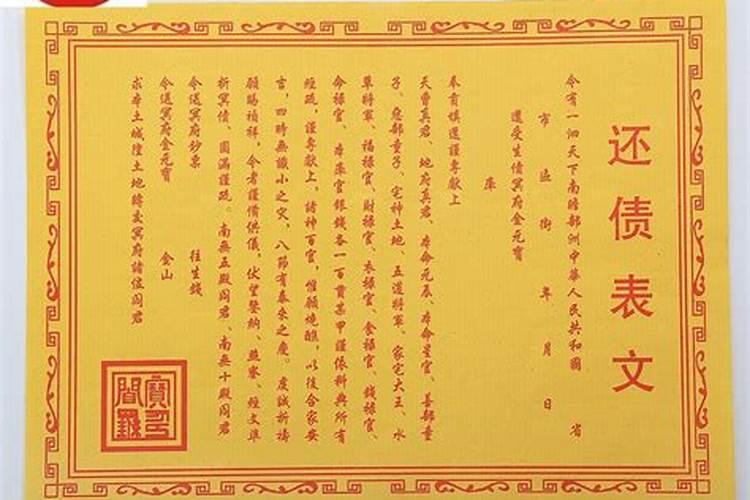 还债表文
今有一泗天下南瞻部洲中華人民共和國 省
市 區 街 年 月 日
還受生債冥府金元寶
庫
奉肓填還謹專獻上
天曹真君、地府真君、本命元辰、本命星官、善部童
子、惡部童子、宅神土地、五道將軍、家宅大王、水
草將軍、福祿官、財祿官、衣祿官、食祿官、錢祿官、
命祿官、本庫官銀錢各一百貫某甲謹依科典所有
經疏，謹專獻上，諸神百官，惟願燒醮，以後合家安
吉，四時無讖小之灾，八節有泰來之慶。虔誠祈禱
願賜禎祥，令者謹備供儀，伏望鑒納、
經文準
折冥債、圓滿謹疏。南無五殿阎君、南無十殿阎君
令送冥府鈔票 往生錢
令送冥府金元寶 金山
求本土城隍土地轉交冥府諸位阎君